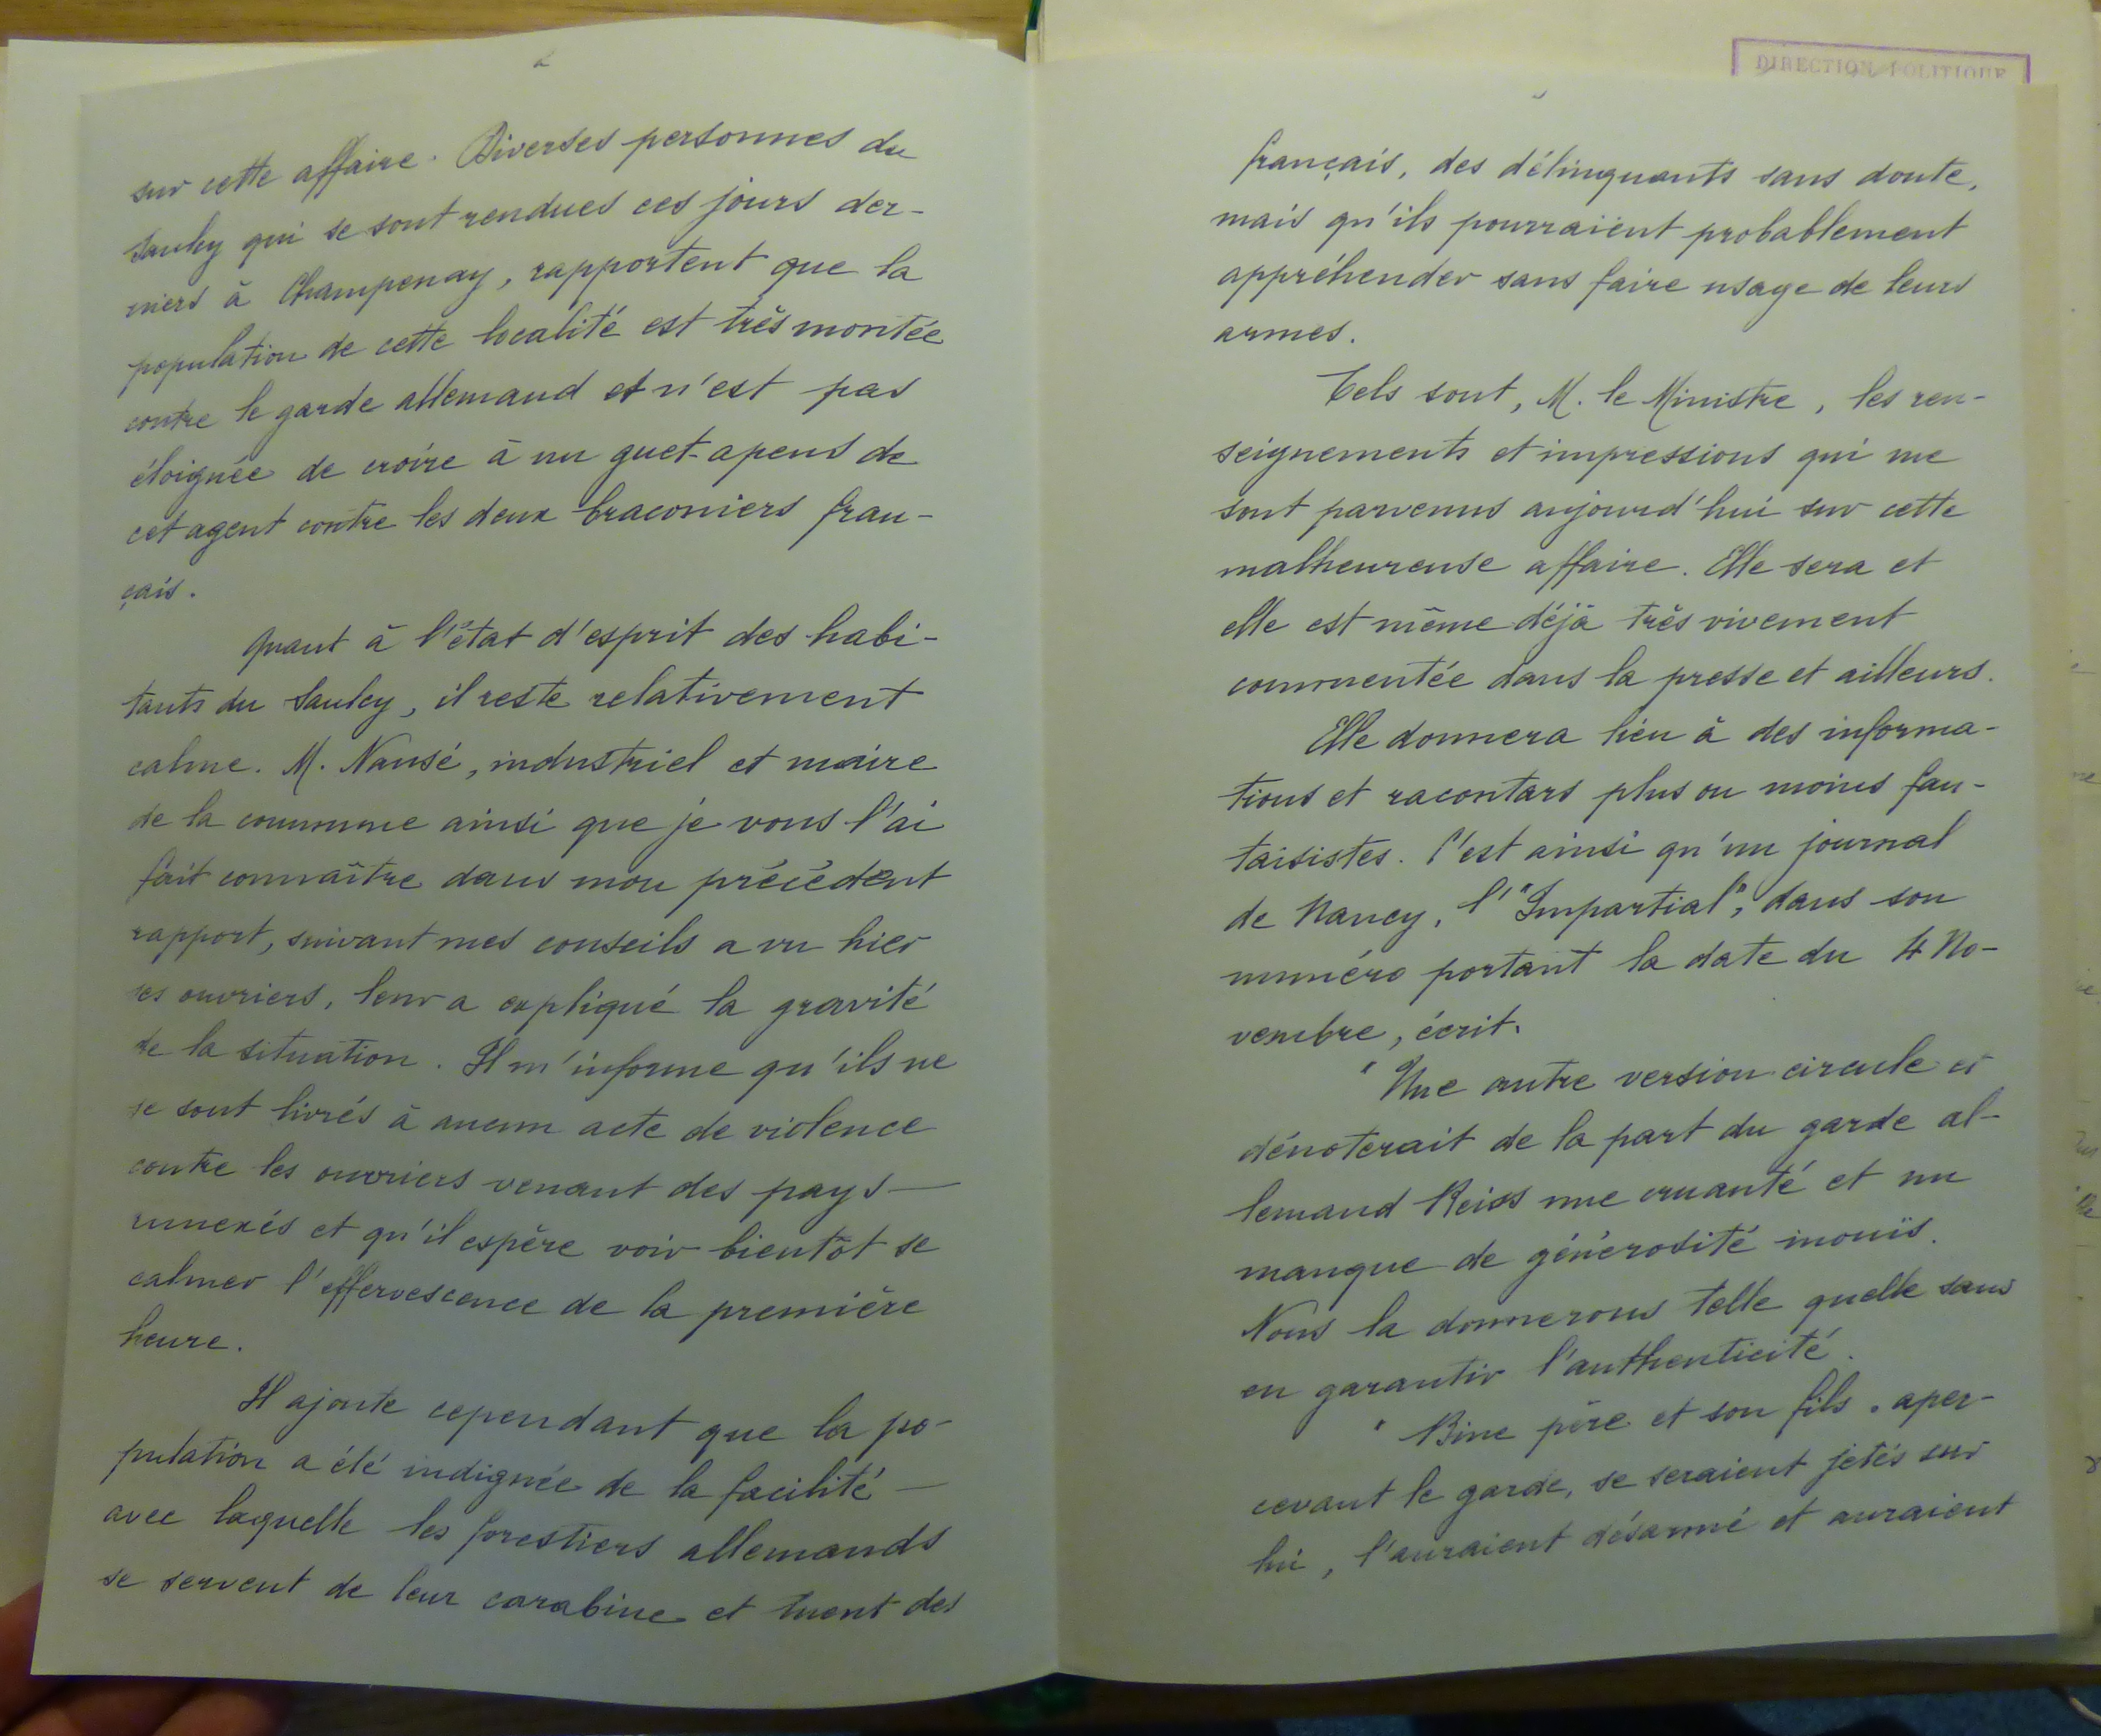 2
sur cette affaire. Diverses personnes du
Saulcy qui se sont rendues ces jours der-
niers à Champenay, rapportent que la
population de cette localité est très montée
contre le garde allemand et n'est pas
éloignée de croire à un guet-apens de
cet agent contre les deux braconniers fran-
çais.
Quant à l'état d'esprit des habi-
tants du Saulcy, il reste relativement
calme. M. Nansé, industriel et maire
de la commune ainsi que je vous l'ai
fait connaître dans mon précédent
rapport, suivant mes conseils a vu hier
ses ouvriers, leur a expliqué la gravité
de la situation. Il m'informe qu'ils ne
se sont livrés à aucun acte de violence
contre les ouvriers venant des pays
annexés et qu'il espère voir bientôt se
calmer l'effervescence de la première
heure.
Il ajoute cependant que la po-
pulation a été indignée de la facilité
avec laquelle les forestiers allemands
se servent de leur carabine et tuent des
DIRECTION POLITIQUE
français, des délinquants sans doute,
mais qu'ils pourraient probablement
appréhender sans faire usage de leurs
armes.
Tels sont, M. le Ministre, les ren-
seignements et impressions qui me
sont parvenus aujourd'hui sur cette
malheureuse affaire. Elle sera et
elle est même déjà très vivement
commentée dans la presse et ailleurs.
Elle donnera lieu à des informa-
tions et racontars plus ou moins fan-
taisistes. C'est ainsi qu'un journal
de Nancy, l'"Impartial", dans son
numéro portant la date du 4 No-
vembre, écrit.
"Une autre version circule et
dénoterait de la part du garde al-
lemand Reiss une cruauté et un
manque de générosité inouïs.
Nous la donnerons telle quelle sans
en garantir l'authenticité.
" Bine père et son fils, aper-
cevant le garde, se seraient jetés sur
lui, l'auraient désarmé et auraient